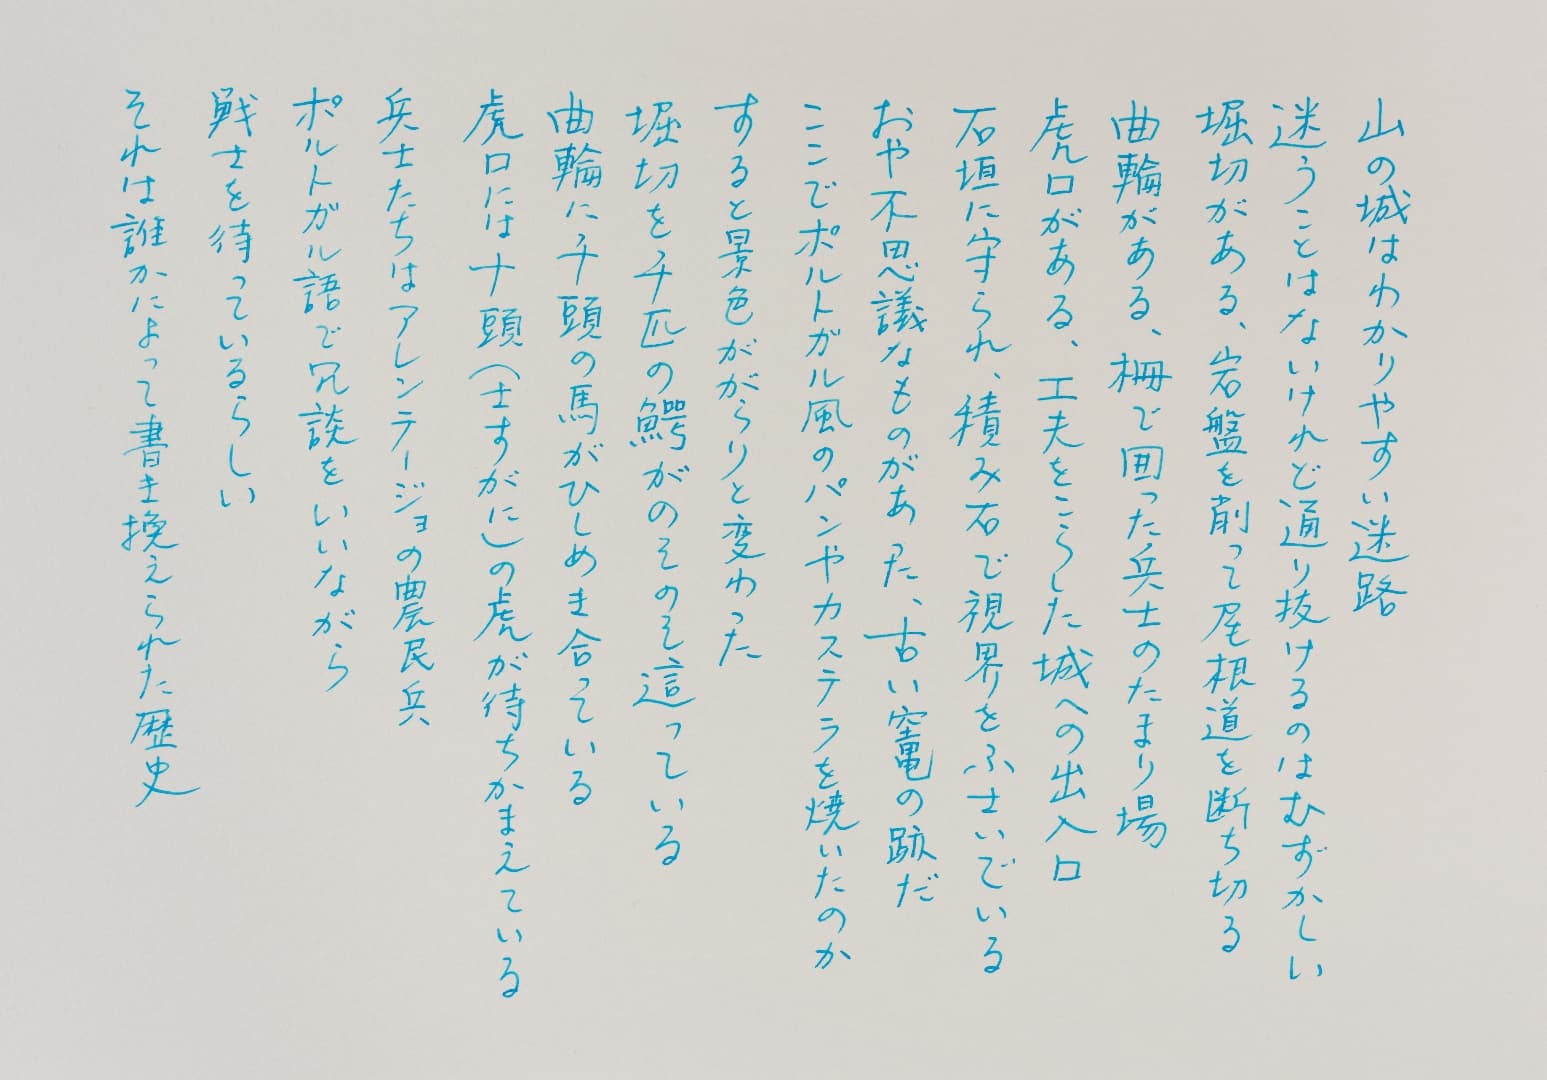 山の城はわかりやすい迷路
迷うことはないけれど通り抜けるのはむずかしい
堀切がある、岩盤を削って尾根道を断ち切る
曲輪がある、柵で囲った兵士のたまり場
虎口がある、工夫をこらした城への出入口
石垣に守られ、積み石で視界をふさいでいる
おや不思議なものがあった、古い窯竈の跡だ
ここでポルトガル風のパンやカステラを焼いたのか
すると景色ががらりと変わった
堀切を千匹の鰐がのそのそ這っている
曲輪に千頭の馬がひしめき合っている
虎口には十頭(さすがに)の虎が待ちかまえている
兵士たちはアレンテージョの農民兵
ポルトガル語で冗談をいいながら
戦士を待っているらしい
それは誰かによって書き換えられた歴史